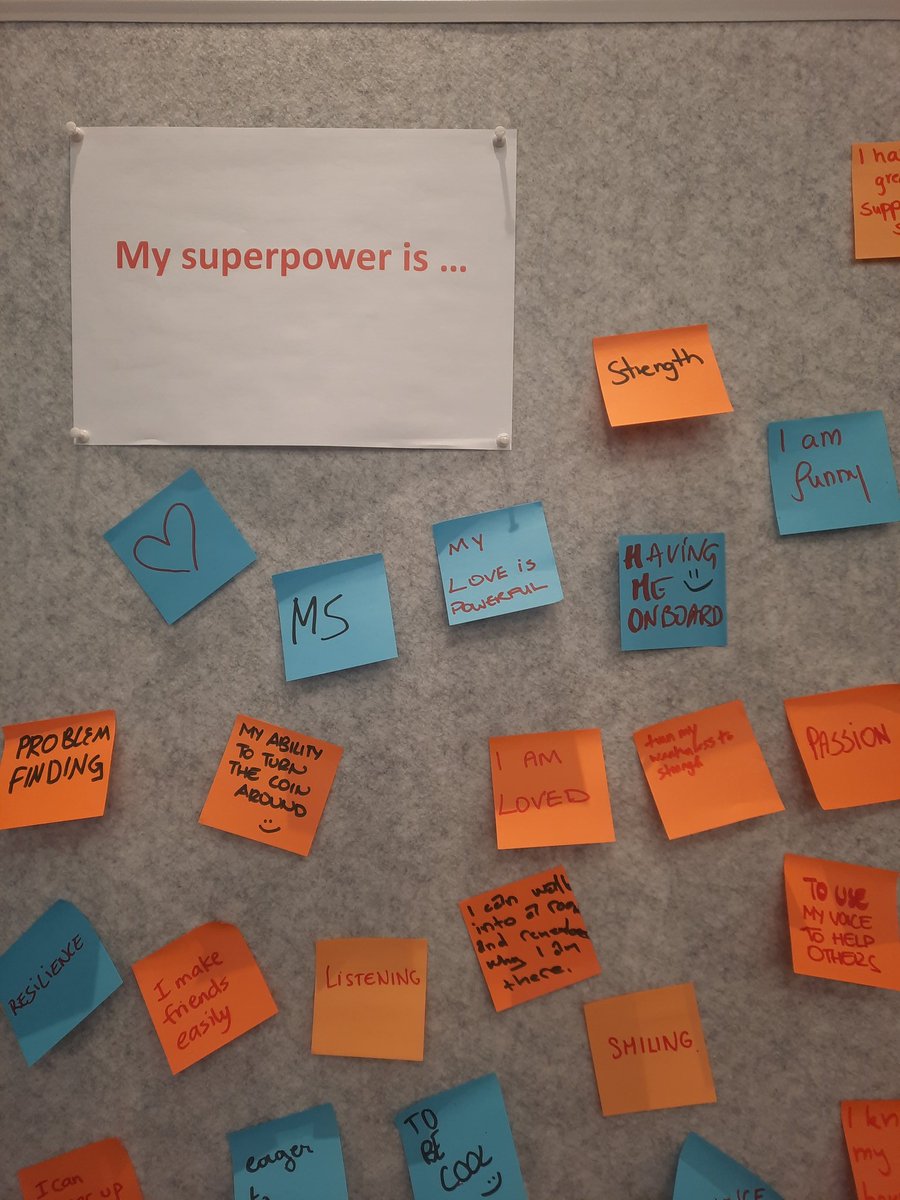 My superpower is ...
I ha
gre
supp
s
Strength
I am
funny
MS
MY
LOVE is
POWERFUL
HAVING
ME
ONBOARD
PROBLEM
FINDING
MY ABILITY
TO TURN
THE COIN
AROUND
I AM
LOVED
turn my
weakness to
strengh
PASSION
RESILIENCE
I make
friends
easily
LISTENING
I can walk
into a room
and remember
why I am
there.
TO USE
MY VOICE
TO HELP
OTHERS
SMILING
I can
up
eager
to
TO
BE
COOL
I kn
my